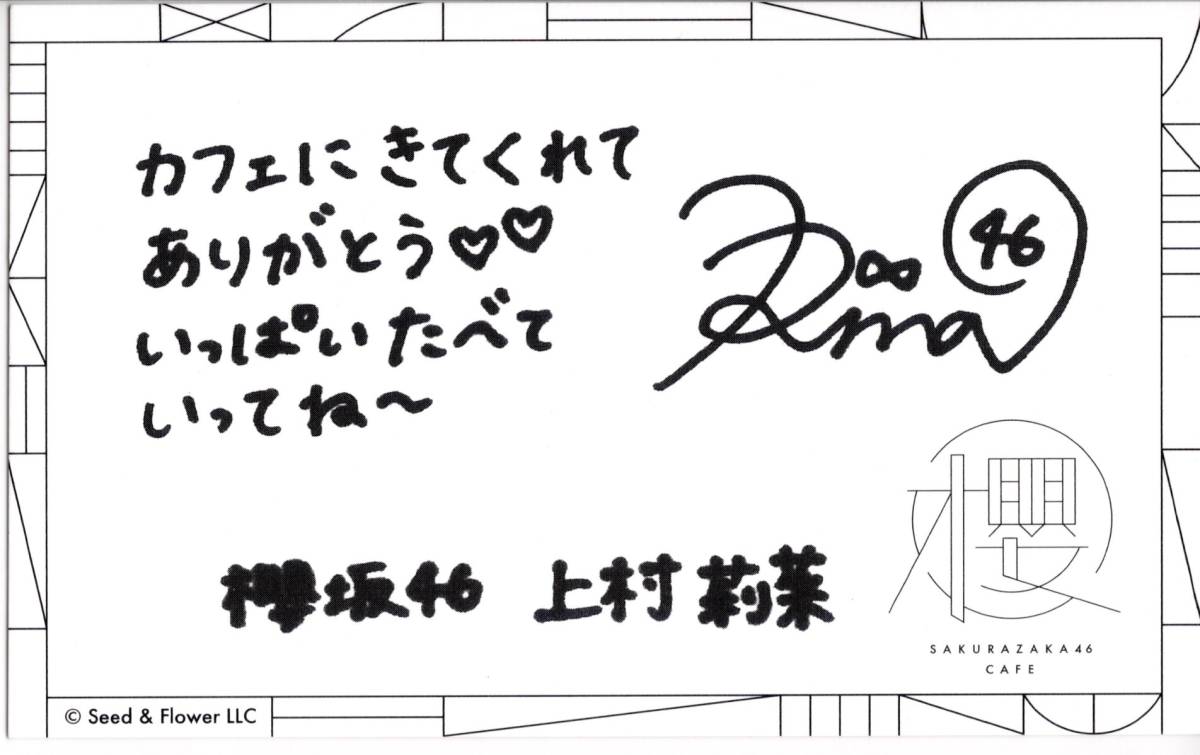 カフェに きてくれて
ありがとう♡♡
いっぱい たべて
いってね〜
46
櫻坂46 上村 莉菜
櫻
SAKURAZAKA46
CAFE
© Seed & Flower LLC